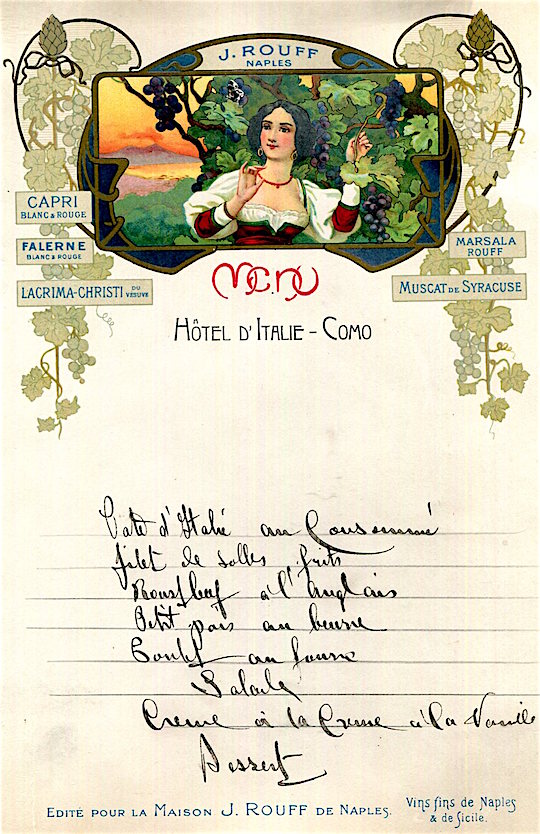 J. ROUFF
NAPLES
CAPRI
BLANC & ROUGE
FALERNE
BLANC & ROUGE
LACRIMA-CHRISTI DU VESUVE
MARSALA
ROUFF
MUSCAT DE SYRACUSE
MENU
HÔTEL D'ITALIE - COMO
Pate d'Italie au Consommé
filet de solles frits
Roastbeef à l'Anglais
Petit pois au beurre
au
Salade
Creme à la à la Vanille
Dessert
EDITÉ POUR LA MAISON J. ROUFF DE NAPLES.
Vins fins de Naples
& de Sicile.